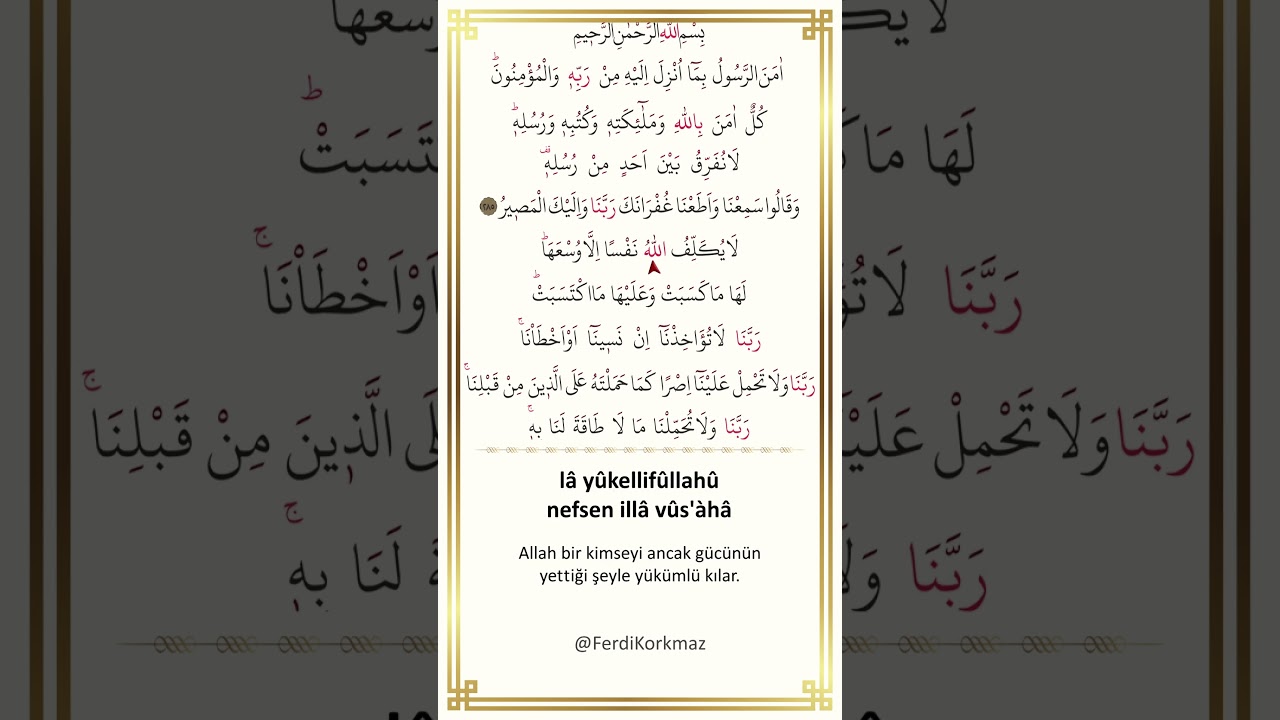 بِسْمِ اللّٰهِ الرَّحْمٰنِ الرَّحٖيمِ
اٰمَنَ الرَّسُولُ بِمَٓا اُنْزِلَ اِلَيْهِ مِنْ رَبِّهٖ وَالْمُؤْمِنُونَؕ
كُلٌّ اٰمَنَ بِاللّٰهِ وَمَلٰٓئِكَتِهٖ وَكُتُبِهٖ وَرُسُلِهٖؕ
لَا نُفَرِّقُ بَيْنَ اَحَدٍ مِنْ رُسُلِهٖࣞ
وَقَالُوا سَمِعْنَا وَاَطَعْنَا غُفْرَانَكَ رَبَّنَا وَاِلَيْكَ الْمَصٖيرُ ٢٨٥
لَا يُكَلِّفُ اللّٰهُ نَفْسًا اِلَّا وُسْعَهَاؕ
لَهَا مَا كَسَبَتْ وَعَلَيْهَا مَا اكْتَسَبَتْؕ
رَبَّنَا لَا تُؤَاخِذْنَٓا اِنْ نَسٖينَٓا اَوْ اَخْطَاْنَاۚ
رَبَّنَا وَلَا تَحْمِلْ عَلَيْنَٓا اِصْرًا كَمَا حَمَلْتَهُ عَلَى الَّذٖينَ مِنْ قَبْلِنَاۚ
رَبَّنَا وَلَا تُحَمِّلْنَا مَا لَا طَاقَةَ لَنَا بِهٖۚ
lâ yûkellifûllahû
nefsen illâ vûs'àhâ
Allah bir kimseyi ancak gücünün
yettiği şeyle yükümlü kılar.
@FerdiKorkmaz